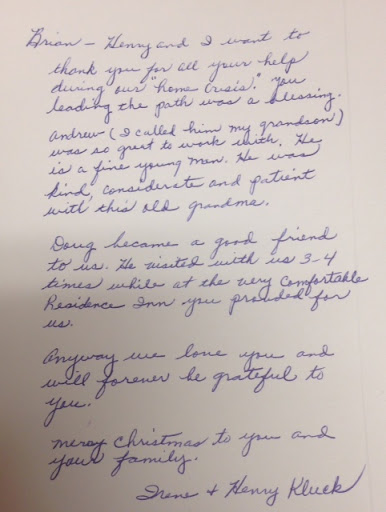 Brian - Henry and I want to
thank you for all your help
during our "home crisis." You
leading the path was a blessing.
Andrew (I called him my grandson)
was so great to work with. He
is a fine young man. He was
kind, considerate and patient
with this old grandma.
Doug became a good friend
to us. He visited with us 3-4
times while at the very comfortable
Residence Inn you provided for
us.
Anyway we love you and
will forever be grateful to
you.
Merry Christmas to you and
your family.
Irene + Henry Kluck